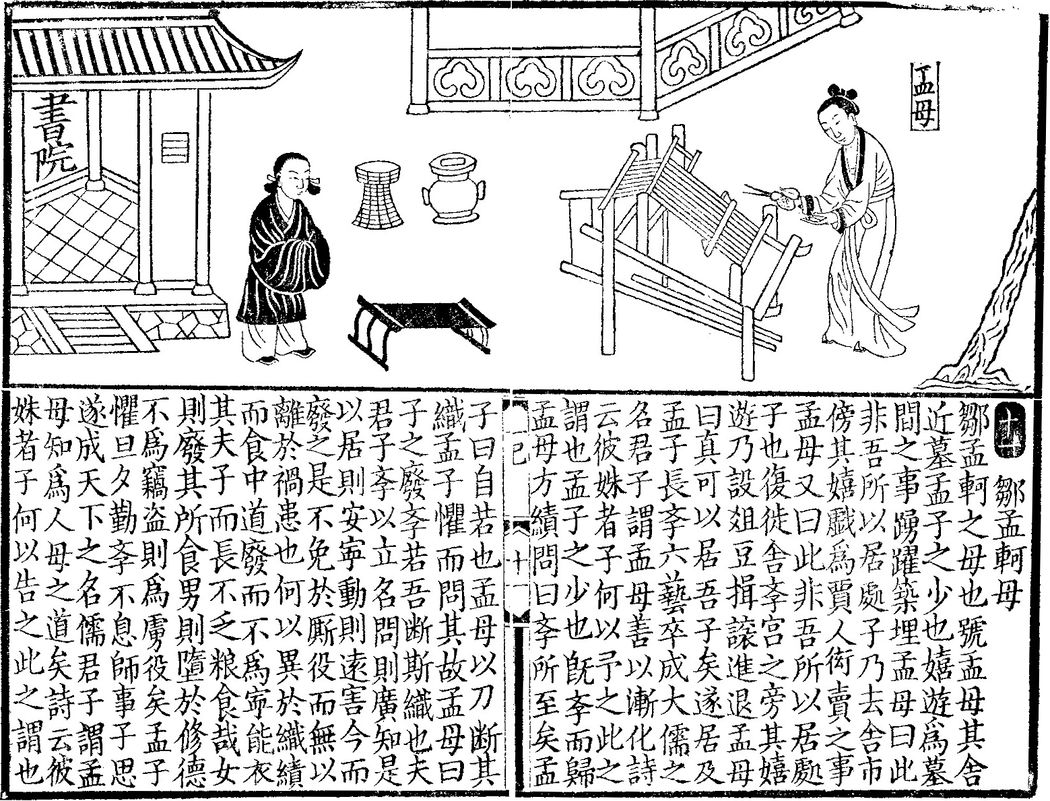 孟母
書院
鄒孟軻母
鄒孟軻之母也號孟母其舍
近墓孟子之少也嬉遊爲墓
間之事踴躍築埋孟母曰此
非吾所以居處子乃去舍市
傍其嬉戲爲賈人衒賣之事
孟母又曰此非吾所以居處
子也復徙舍斈宮之旁其嬉
遊乃設俎豆揖讓進退孟母
曰真可以居吾子矣遂居及
孟子長斈六藝卒成大儒之
名君子謂孟母善以漸化詩
云彼姝者子何以予之此之
謂也孟子之少也旣斈而歸
孟母方績問曰斈所至矣孟
子曰自若也孟母以刀斷其
織孟子懼而問其故孟母曰
子之廢斈若吾斷斯織也夫
君子斈以立名問則廣知是
以居則安寧動則遠害今而
廢之是不免於厮役而無以
離於禍患也何以異於織績
而食中道廢而不爲寧能衣
其夫子而長不乏粮食哉女
則廢其所食男則墮於修德
不爲竊盗則爲虜役矣孟子
懼旦夕勤斈不息師事子思
遂成天下之名儒君子謂孟
母知爲人母之道矣詩云彼
姝者子何以告之此之謂也